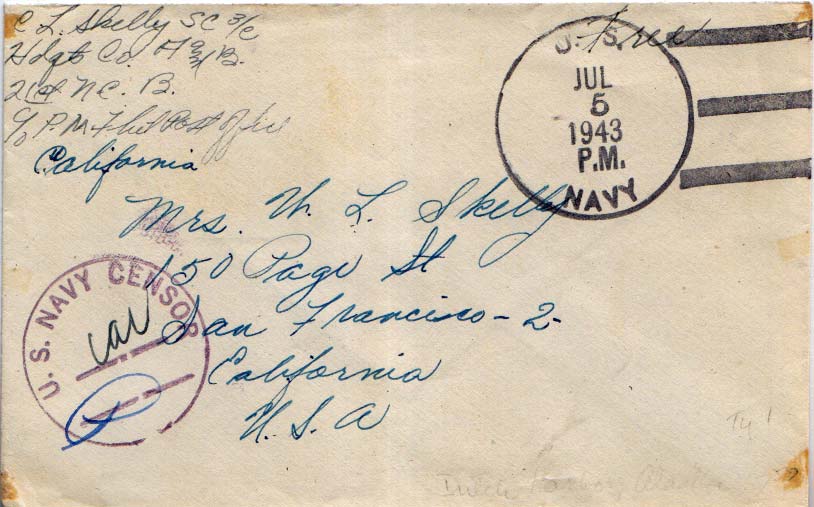 C L. Skelly SC 3/c
Hdqt Co.
21st N.C.B.
c/o P.M. Flt Post Office
California
Free
U.S.
JUL
5
1943
P.M.
NAVY
Mrs. W. L. Skelly
150 Page St
San Francisco - 2 -
California
U.S.A
U.S. NAVY CENSOR
Dutch Harbor, Alaska